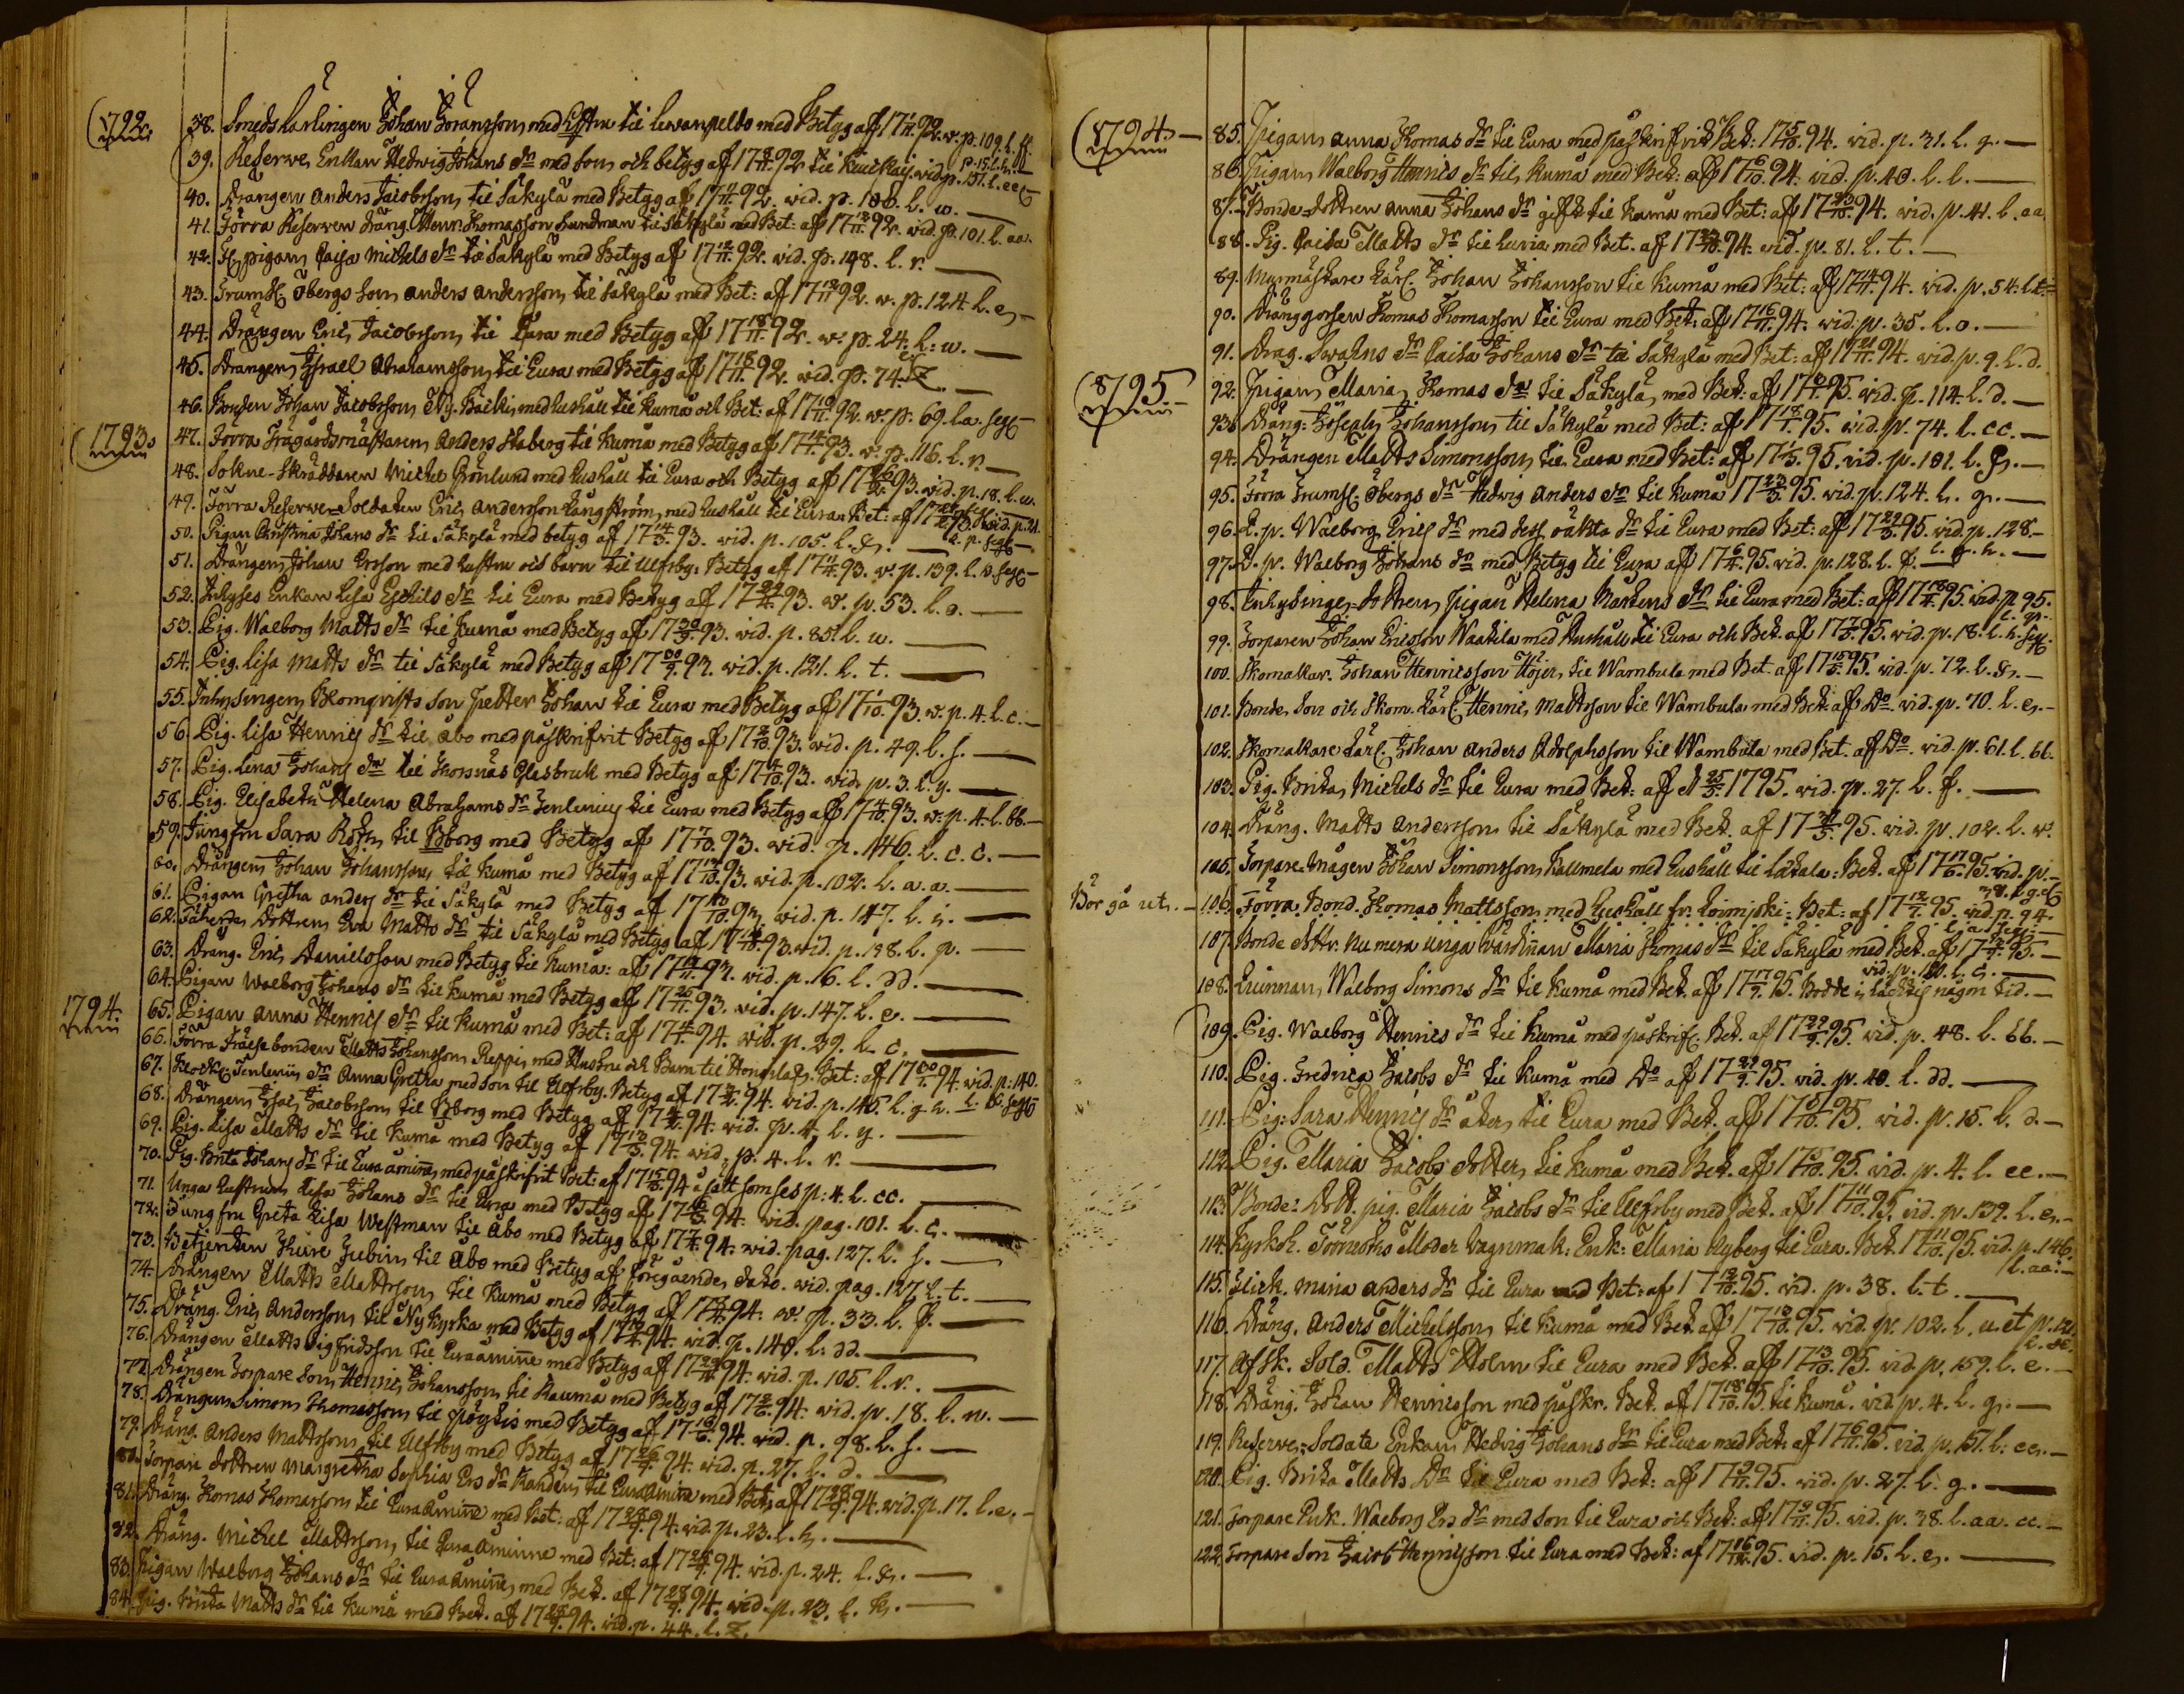 1792.
38. Smeds Lärlingen Johan Joransson med Hustru til Lewanpeldo med Betyg af 17 1/11 92. v. p. 109. l. ff.
39. Reserwes Enkan Hedwig Johans dr med son och betyg af 17 8/11 92 til wid p. 151. l. ee
40. Drängen Anders Jacobsson til Säkylä med Betyg af 17 11/11 92. wid. p. 186. l. w.
41. Förra Reserwen Dräng. Henr. Thomasson Sundman til Säkylä med Bet: af 17 12/11 92. wid. p. 101. l. aa.
42. pigan Caisa Michels dr til Säkylä med Betyg af 17 12/11 92. wid. p. 148. l. r.
43. Trumsl. Öbergs Son Anders Andersson til Säkylä med Bet: af 17 12/11 92. w. p. 124. l. e.
44. Drängen Eric Jacobsson til Eura med Betyg af 17 18/11 92. w. p. 24. l: w.
45. Drängen Israel Abrahamsson til Eura med Betyg af 17 18/11 92. wid. p. 74. l. z.
46. Bonden Johan Jacobsson Ny. Bäcki med hushåll til Kumå och Bet: af 17 19/11 92. w. p. 69. l. a. seq
1793.
47. Förra Trägårdsmästaren Anders Staberg til Kumå med Betyg af 17 14/1 93. w. p. 116. l. r.
48. Sokne-Skräddaren Michel Grönlund med hushåll til Eura och Betyg af 17 26/2 93. wid. p. 18. l. w.
49. Förra Reserwe-Soldaten Eric Andersson Långström med hushåll til Eura Bet: af 17 93. wid. p. 21. l. p. seq
50. Pigan Christina Johans dr til Säkylä med betyg af 17 14/3 93. wid. p. 105. l. &.
51. Drängen Johan Ersson med hustru och barn til Ulfsby: Betyg af 17 1/4 93. w. p. 139. l. p. seq
52. Inhyses Enkan Lisa Eskils dr til Eura med Betyg af 17 29/4 93. w. p. 53. l. o.
53. Pig. Walborg Matts dr til Kumå med Betyg af 17 30/9 93. wid. p. 85. l. u.
54. Pig. Lisa Matts dr til Säkylä med Betyg af 17 30/9 93. wid. p. 121. l. t.
55. Inhysingen Blomqvists son petter Johan til Eura med Betyg af 17 1/10 93. w. p. 4. l. c.
56. Pig. Lisa Henrics dr til Åbo med påskrifwit Betyg af 17 2/10 93. wid. p. 49. l. f.
57. Pig. Lena Johans dr til Thorsnäs Glasbruk med Betyg af 17 4/10 93. wid. p. 3. l. y.
58. Pig. Elisabeth Helena Abrahams dr Jenlenius til Eura med Betyg af 17 4/10 93. w. p. 4. l. bb.
59. Jungfru Sara Roth til Bborg med Betyg af 17 7/10 93. wid. p. 146. l. c. c.
60. Drängen Johan Johansson til Kumå med Betyg af 17 14/10 93. wid. p. 102. l. a. a.
61. Pigan Gretha Anders dr til Säkylä med Betyg af 17 93. wid. p. 147. l. i.
62. Dottren Eva Matts dr til Säkylä med Betyg af 17 93. wid. p. 138. l. p.
63. Dräng. Eric Danielsson med Betyg til Kumå: af 17 93. wid. p. 6. l. dd.
64. Pigan Walborg Johans dr til Kumå med Betyg af 17 25/11 93. wid. p. 147. l. e.
1794.
65. Pigan Anna Henrics dr til Kumå med Bet: af 17 4/1 94. wid. p. 39. l. c.
66. Förra Frälsebonden Matts Johansson Reppi med Hustru och Barn til Bet: af 17 94. wid. p: 140. l: bb. seq
67. Klock: Jenlenii dr Anna Gretha med son til Ulfsby. Betyg af 17 94. wid. p. 145. l. g. h.
68. Drängen Isac Jacobsson til Bborg med Betyg af 17 94. wid. p. 4. l. y.
69. Pig. Lisa Matts dr til Kumå med Betyg af 17 13/3 94. wid. p. 4. l. r.
70. Pig. Brita Johans dr til Eura åminne med påskrifwit Bet: af 17 15/3 94 å sätt som ses p: 4. l. cc.
71. Unga hustrun Lisa Johans dr til Eura med Betyg af 17 94. wid pag. 101. l. c.
72. Jungfru Greta Lisa Westman til Åbo med Betyg af 17 94. wid. pag. 127. l. s.
73. Betjenten Thure til Åbo med Betyg af föregående dato. wid. pag. 127. l. t.
74. Drängen Matts Mattsson til Kumå med Betyg af 17 94. w. p. 33. l. p.
75. Dräng. Eric Andersson til Nykyrka med Betyg af 17 94. wid. p. 140. l. dd.
76. Drängen Matts Sigfridsson til Euraåminne med Betyg af 17 94. wid. p. 105. l. v.
77. Drängen Torpare son Henric Johansson til Rauma med Betyg af 17 94. wid. p. 18. l. n.
78. Drängen Simon Thomasson til pöytis med Betyg af 17 94. wid. p. 98. l. f.
79. Dräng. Anders Mattsson til Ulfsby med Betyg af 17 26/9 94. wid. p. 27. l. d.
80. Torpare dottren Margretha Sophia Ers dr til Euraåminne med Bet: af 17 28/9 94. wid. p. 17. l. e.
81. Dräng. Thomas Thomasson til Euraåminne med Bet: af 17 28/9 94. wid. p. 23. l. h.
82. Dräng. Michel Mattsson til Euraåminne med Bet: af 17 28/9 94. wid. p. 24. l. &.
83. Pigan Walborg Johans dr til Euraåminne med Bet. af 17 28/9 94. wid. p. 23. l. k.
84. Pig. Brita Matts dr til Kumå med Bet. af 17 28/9 94. wid. p. 44. l. z.
1794.
85. Pigan Anna Thomas dr til Eura med påskrifvit Bet: 17 5/10 94. vid. p. 31. l. g.
86. Pigan Walborg Henrics dr til Kumå med Bet: aff 17 6/10 94. vid. p. 40. l. l.
87. Bonde-dottren Anna Johans dr gift til Kumå med Bet: af 17 23/10 94. vid. p. 41. l. aa.
88. Pig. Caisa Matts dr til Luvia med Bet. af 17 23/10 94. vid. p. 81. l. t.
89. Murmästare Lärl. Johan Johansson til Kumå med Bet: aff 17 14/11 94. vid. p. 54. l. t.
90. Dränggossen Thomas Thomasson til Eura med Bet: aff 17 16/11 94. vid. p. 35. l. o.
91. Drag. Swahns dr Caisa Johans dr til Säkylä med Bet: aff 17 21/11 94. vid. p. 9. l. d.
1795.
92. Pigan Maria Thomas dr til Säkylä med Bet: aff 17 95. vid. p. 114. l. d.
93. Dräng: Joseph Johansson til Säkylä med Bet: af 17 18/1 95. vid. p. 74. l. cc.
94. Drängen Matts Simonsson til Eura med Bet: aff 17 1/3 95. vid. p. 101. l. g.
95. Förra Trumsl: Öbergs dr Hedwig Anders dr til Kumå 17 23/3 95. vid. p. 124. l. g.
96. L. p. Walborg Erics dr med dess oäkta dr til Eura med Bet: aff 17 29/3 95. vid. p. 128. l. g. h.
97. L. p. Walborg Johans dr med Betyg til Eura aff 17 6/4 95. vid. p. 128. l. f.
98. Inhysinge-dottren pigan Helena Mårtens dr til Eura med Bet: aff 17 18/4 95. vid. p. 95. l. p.
99. Torparen Johan Ericsson Waatila med Hushåll til Eura och Bet. af 17 95. vid. p. 18. l. h. seq.
100. Skomakar. Johan Henricsson Höjer til Wambula med Bet. af 17 15/5 95. vid. p. 72. l. &.
101. Bonde Son och Skom. Lärl. Henric Mattsson til Wambula med Bet. aff Do. vid. p. 70. l. e.
102. Skomakare Lärl. Johan Anders Adolphsson til Wambula med Bet. aff Do. vid. p. 61. l. bb.
103. Pig. Brita Michels dr til Eura med Bet: aff d 25/5 1795. vid. p. 27. l. f.
104. Dräng. Matts Andersson til Säkylä med Bet. af 17 95. vid. p. 102. l. v.
105. Torpare-Mågen Johan Simonsson med hushåll til Lokala: Bet. af 17 17/6 95. vid. p.
Bör gå ut.
106. Förra Bond. Thomas Mattsson med Hushåll fr. : Bet: af 17 12/7 95. vid. p. 94. l. a. seq.
107. Bonde dottr. nu mera unga wärdinnan Maria Thomas dr til Säkylä med Bet. aff 17 95. vid. p. l. c.
108. Qvinnan Walborg Simons dr til Kumå med Bet. aff 17 17/9 95. Bodde i någon tid.
109. Pig. Walborg Henrics dr til Kumå med påskrif. Bet. af 17 22/9 95. vid. p. 48. l. bb.
110. Pig. Fredrica Jacobs dr til Kumå med Do af 17 27/9 95. vid. p. 40. l. dd.
111. Pig: Sara Henrics dr åter til Eura med Bet. aff 17 5/10 95. vid. p. 15. l. d.
112. Pig. Maria Jacobs dotter til Kumå med Bet. af 17 5/10 95. vid. p. 4. l. ee.
113. Bonde: Dott. pig. Maria Jacobs dr til Ulfsby med Bet. af 17 11/10 95. vid. p. 139. l. e.
114. Kyrkoh. Moder Vagnmak: Enk: Maria Nyberg til Eura. Bet. 17 11/10 95. vid. p. 146. l. aa.
115. Maria Anders dr til Eura med Bet: af 17 12/10 95. vid. p. 38. l. t.
116. Dräng. Anders Michelsson til Kumå med Bet. aff 17 13/10 95. vid. p. 102. l. u. et p. 121.
117. Afsk. Sold. Matts Holm til Eura med Bet. aff 17 13/10 95. vid. p. 159. l. e.
118. Dräng. Johan Henricsson med påskr. Bet. af 17 18/10 95. til Kumå. vid. p. 4. l. g.
119. Reserve-Soldats Enkan Hedvig Johans dr til Eura med Bet. af 17 6/11 95. vid. p. 151. l: ee.
120. Pig. Brita Matts dr til Eura med Bet: aff 17 9/11 95. vid. p. 27. l. g.
121. Torpare Enk. Walborg Ers dr med son til Eura och Bet: aff 17 9/11 95. vid. p. 38. l. aa. cc.
122. Torpare Son Jacob Henricsson til Eura med Bet: af 17 16/12 95. vid. p. 15. l. e.